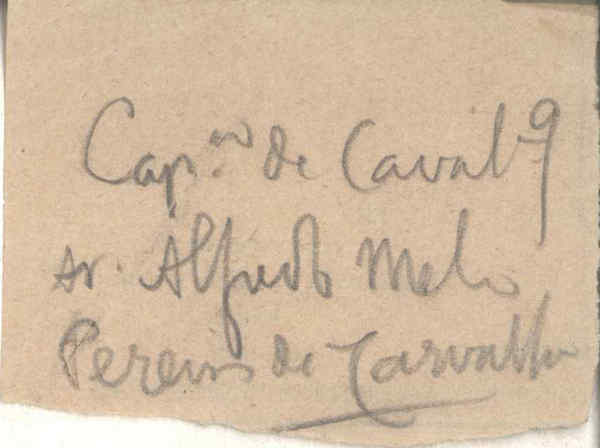 Cap.ᵃᵒ de Caval.ª 9
Sr. Alfredo Melo
Pereira de Carvalho